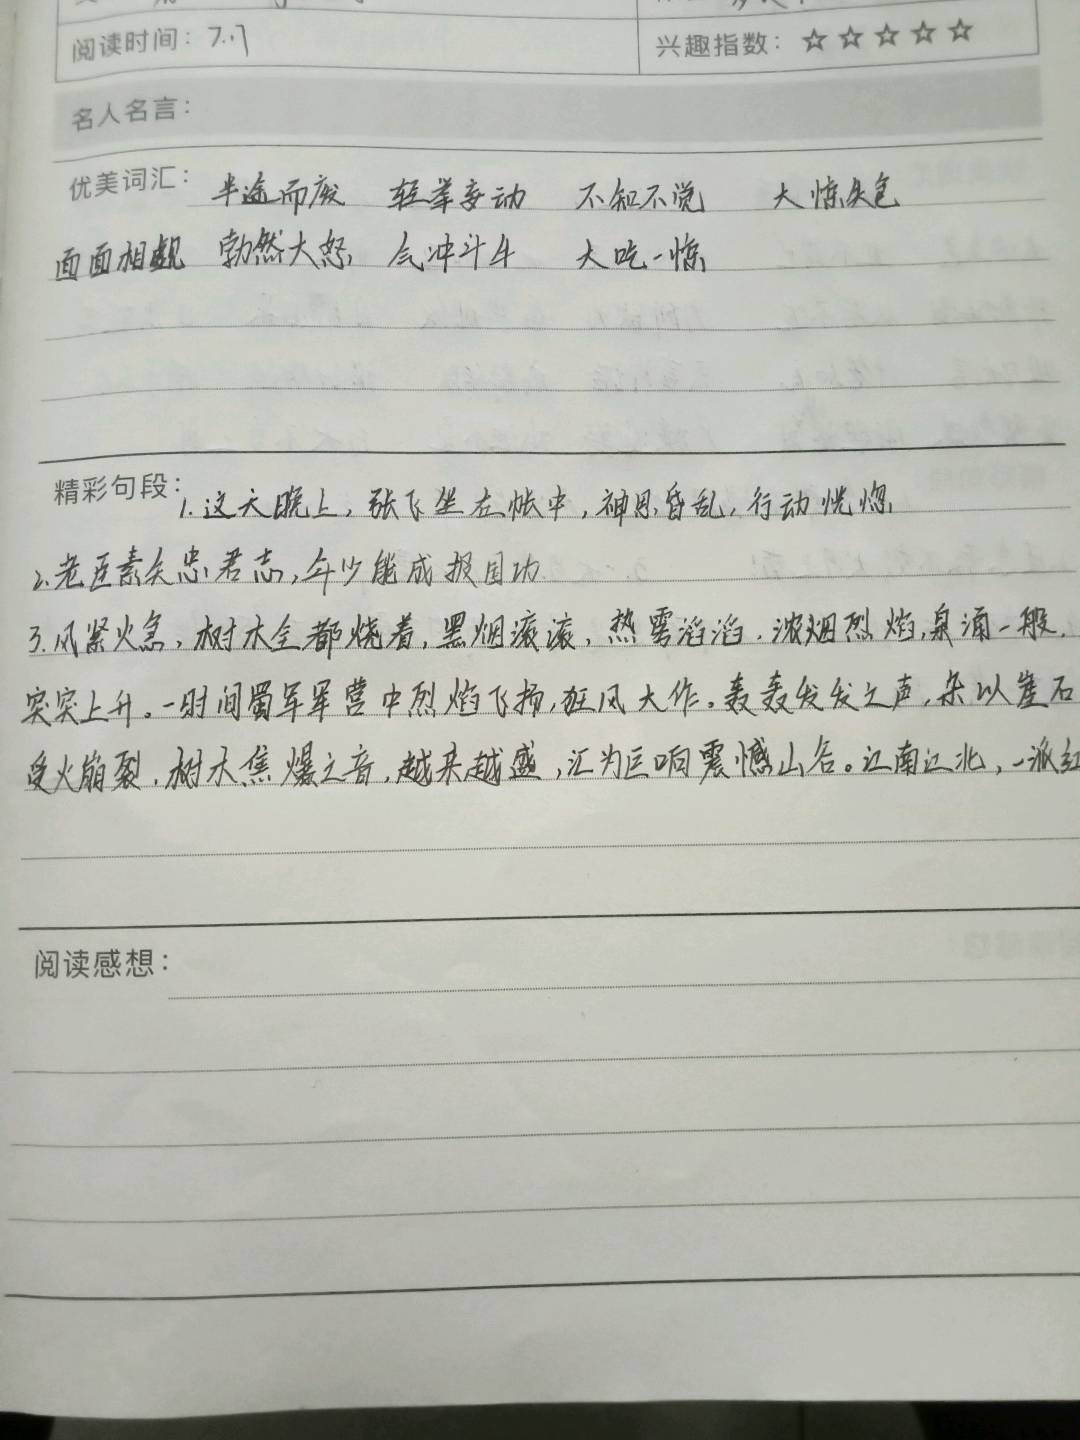 阅读时间：7.17
兴趣指数：☆☆☆☆☆
名人名言：
优美词汇：半途而废 轻举妄动 不知不觉 大惊失色
面面相觑 勃然大怒 气冲斗牛 大吃一惊
精彩句段：1.这天晚上，张飞坐在帐中，神思昏乱，行动恍惚
2.老臣素矢忠君志，年少能成报国功
3.风紧火急，树木全都烧着，黑烟滚滚，热雾滔滔，浓烟烈焰，泉涌一般，
突突上升。一时间蜀军军营中烈焰飞扬，狂风大作。轰轰发发之声，杂以崖石
受火崩裂，树木焦爆之音，越来越盛，汇为巨响震憾山谷。江南江北，一派红
阅读感想：